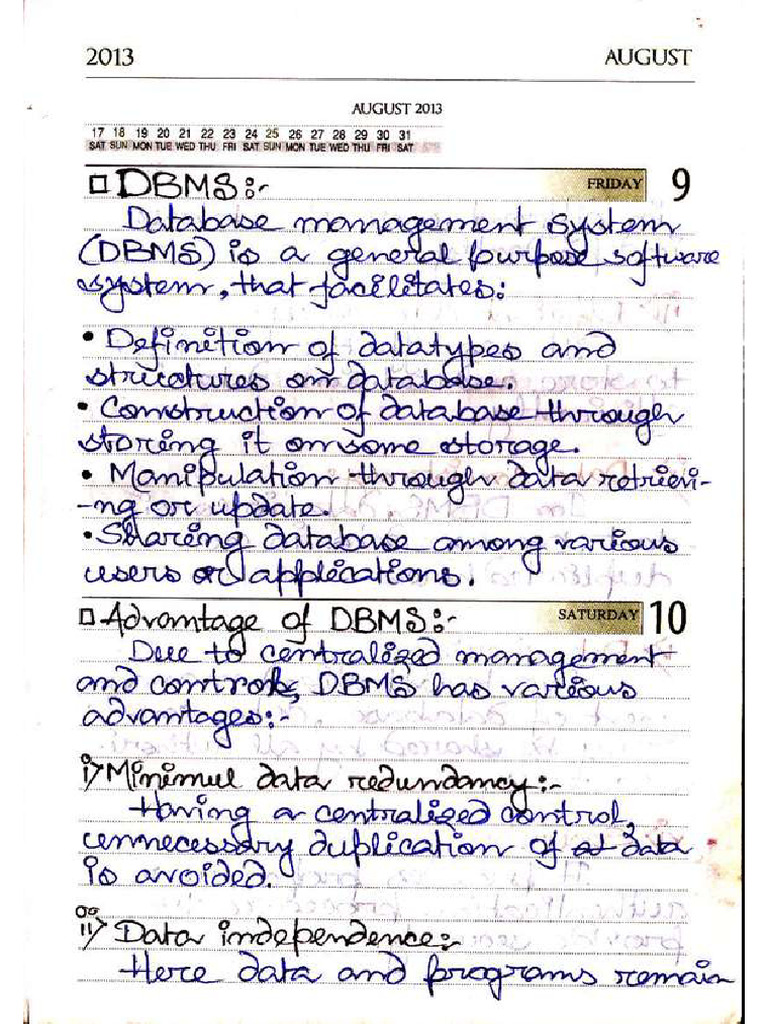 2013 AUGUST
AUGUST 2013
17 18 19 20 21 22 23 24 25 26 27 28 29 30 31
SAT SUN MON TUE WED THU FRI SAT SUN MON TUE WED THU FRI SAT
□ DBMS:- FRIDAY 9
Database management system
(DBMS) is a general purpose software
system, that facilitates:
• Definition of datatypes and
structures on database.
• Construction of database through
storing it on some storage.
• Manipulation through data retrievi-
-ng or update.
• Sharing database among various
users or applications.
□ Advantage of DBMS:- SATURDAY 10
Due to centralized management
and control, DBMS has various
advantages:-
i> Minimul data redundancy:-
Having a centralized control,
unnecessary duplication of data
is avoided.
ii> Data independence:-
Here data and programs remain